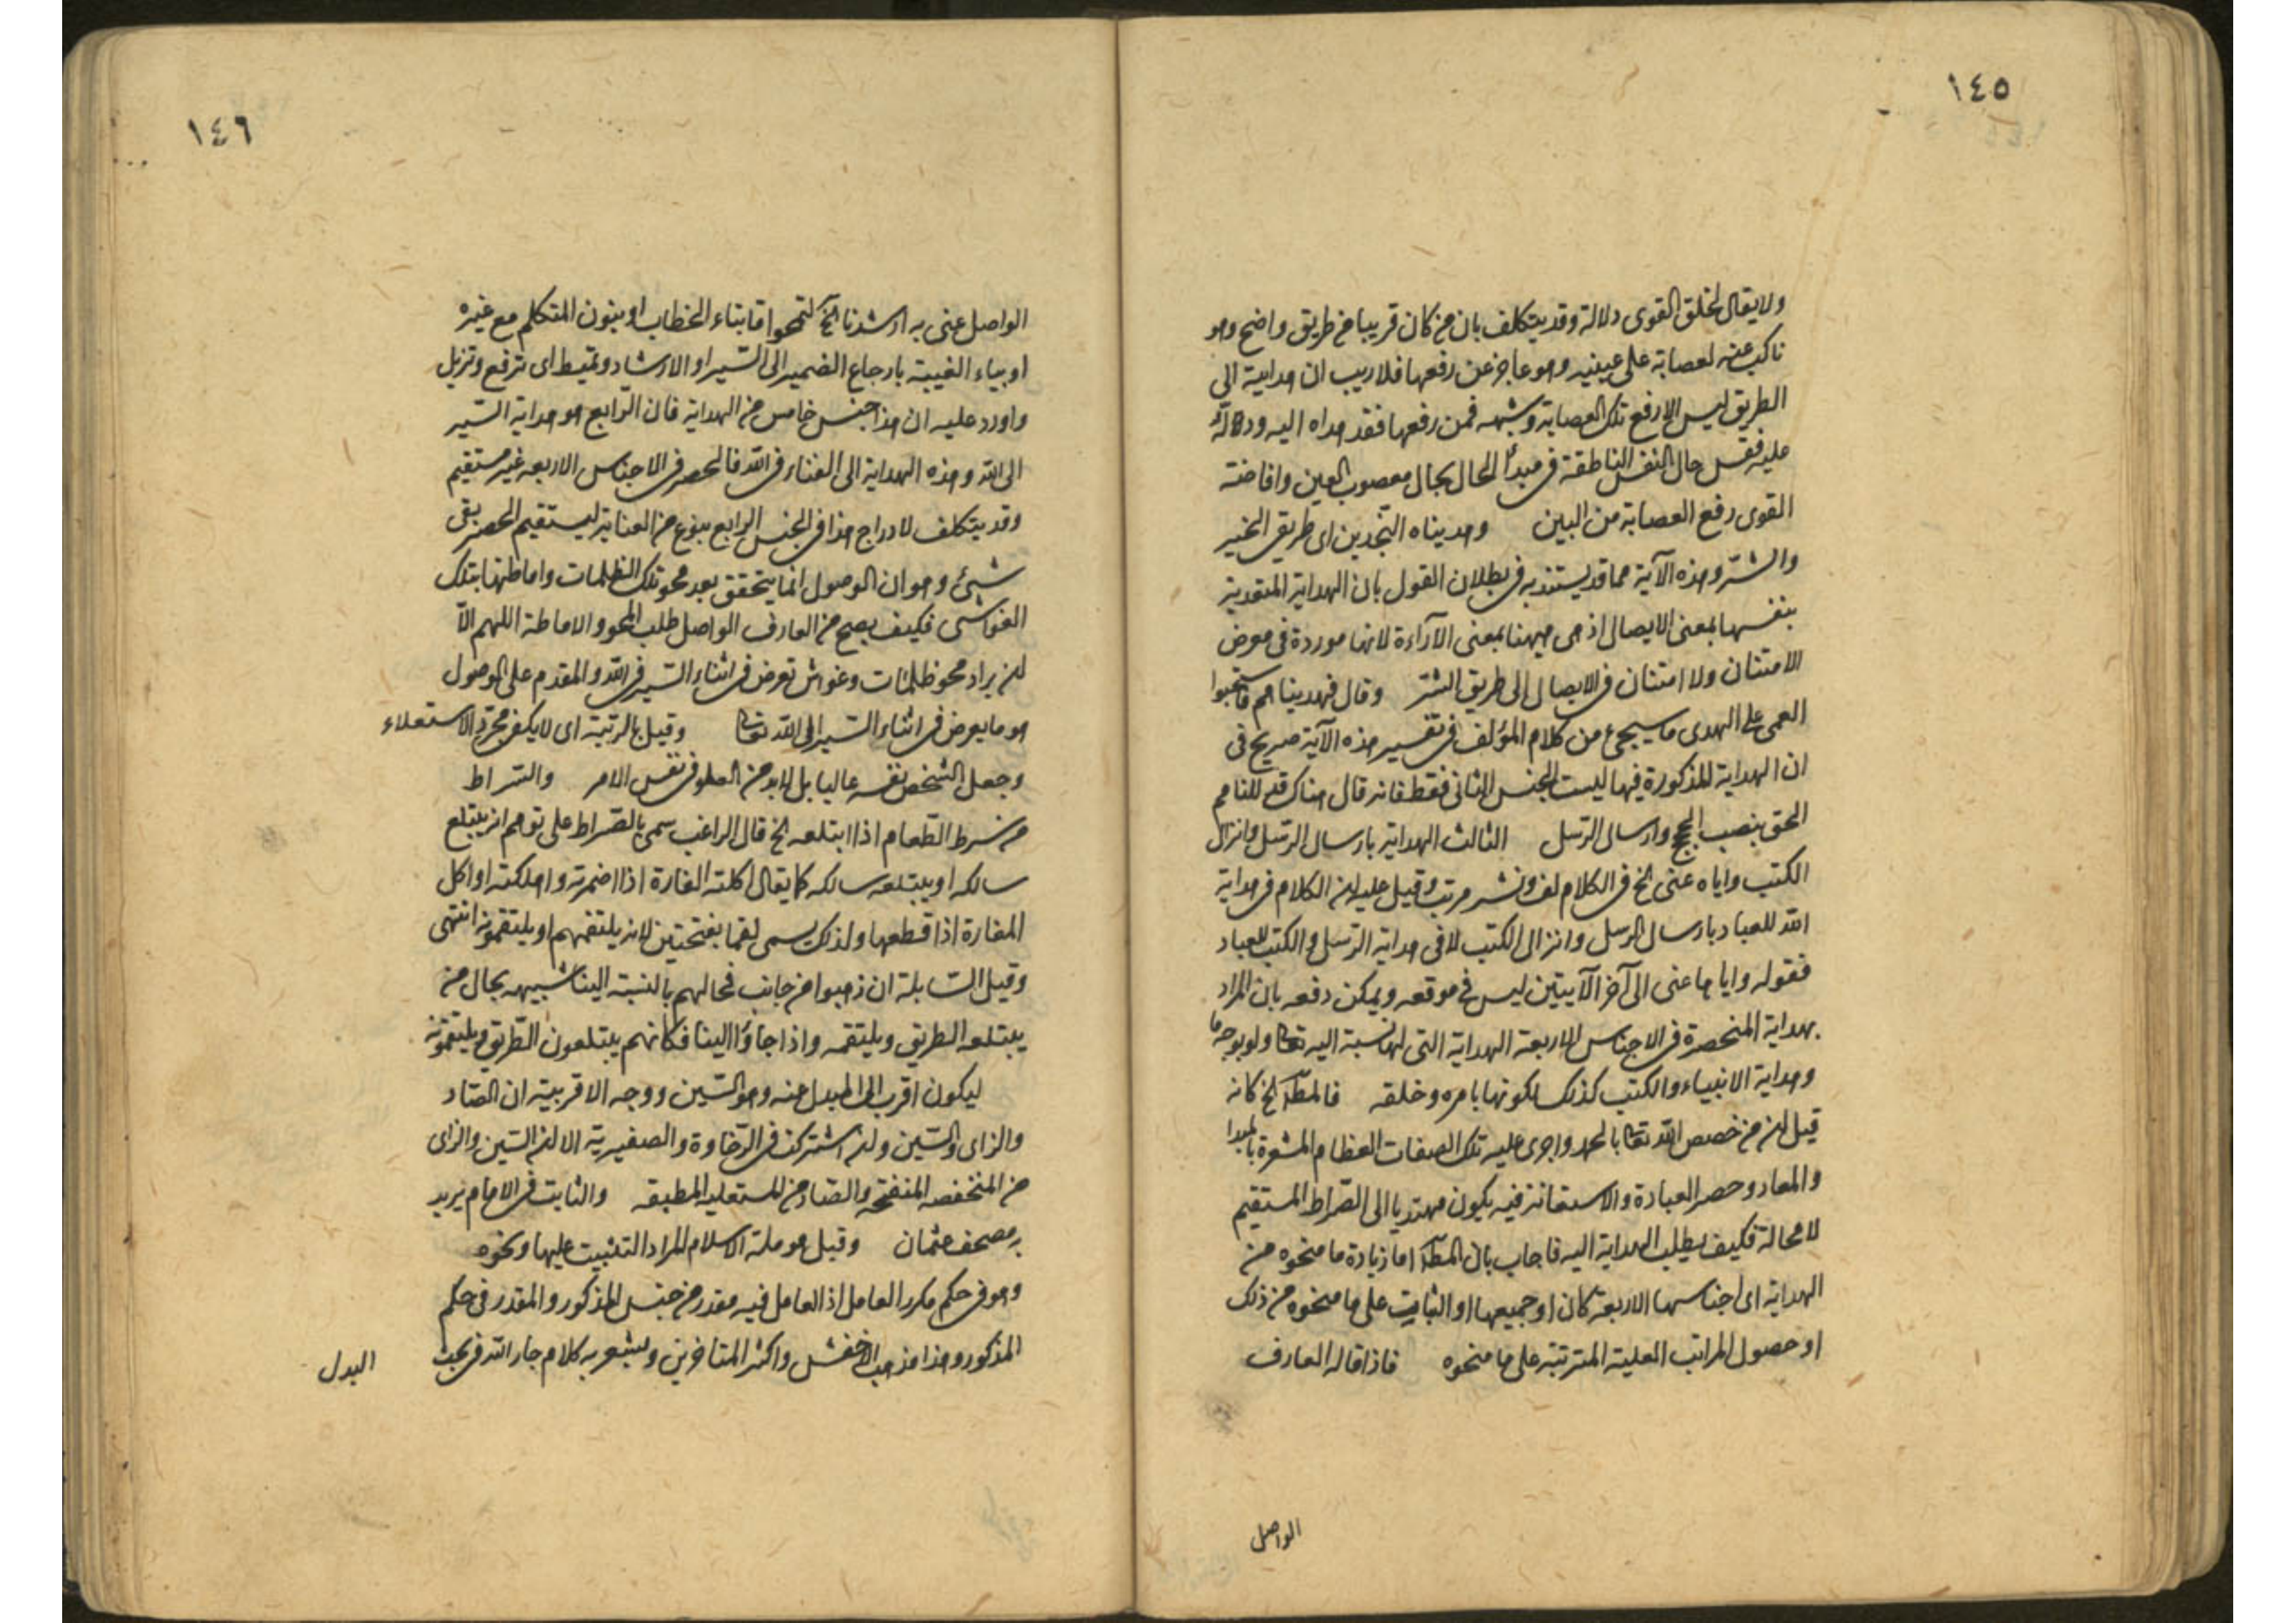 ١٤٥
ولا يقال لخلق القوى دلالة وقد يتكلف بان من كان قريبا من طريق واضح وهو
ناكب عنه لعصابة على عينيه وهو عاجز عن رفعها فلا ريب ان هدايته الى
الطريق ليس الا رفع تلك العصابة وشبهه فمن رفعها فقد هداه اليه ودلالة
عليه فقس حال النفس الناطقة فى مبدأ الحال بحال معصوب العين وافاضة
القوى رفع العصابة من البين وهديناه النجدين اى طريقى الخير
والشر وهذه الآية مما قد يستند به فى بطلان القول بان الهداية المتعدية
بنفسها بمعنى الايصال اذ هى ههنا بمعنى الآراءة لانها موردة فى معرض
الامتنان ولا امتنان فى الايصال الى طريق الشر وقال فهديناهم فاستحبوا
العمى على الهدى ما سيجئ من كلام المؤلف فى تفسير هذه الآية صريح فى
ان الهداية المذكورة فيها ليست الجنس الثانى فقط فانه قال هناك فدللناهم
الحق بنصب الحجج وارسال الرسل الثالث الهداية بارسال الرسل وانزال
الكتب واياه عنى الخ فى الكلام لف ونشر مرتب وقيل عليه ان الكلام فى هداية
الله للعباد بارسال الرسل وانزال الكتب لا فى هداية الرسل والكتب للعباد
فقوله واياها عنى الى آخر الآيتين ليس فى موقعه ويمكن دفعه بان المراد
بهداية المنحصرة فى الاجناس الاربعة الهداية التى لها نسبة اليه تعا ولو بوجه ما
وهداية الانبياء والكتب كذلك لكونها بامره وخلقه فالمط الخ كانه
قيل ان من خصص الله تعا بالحمد واجرى عليه تلك الصفات العظام المشعرة بالمبدا
والمعاد وحصر العبادة والاستعانة فيه يكون مهتديا الى الصراط المستقيم
لا محالة فكيف يطلب الهداية اليه فاجاب بان المط اما زيادة ما منحوه من
الهداية اى اجناسها الاربعة كان او جميعها او الثابت على ما منحوه من ذلك
او حصول المراتب العلية المترتبة على ما منحوه فاذا قاله العارف
الواصل
١٤٦
الواصل عنى به ارشدنا الخ لتمحوا ما بتاء الخطاب او بنون المتكلم مع غيره
او بياء الغيبة بارجاع الضمير الى السير او الارشاد وتميط اى ترفع وتزيل
واورد عليه ان هذا جنس خامس من الهداية فان الرابع هو هداية السير
الى الله وهذه الهداية الى الفناء فى الله فالحصر فى الاجناس الاربعه غير مستقيم
وقد يتكلف لادراج هذا فى الجنس الرابع بنوع من العناية ليستقيم الحصر بقى
شئ وهو ان الوصول انما يتحقق بعد محو تلك الظلمات واماطتها بتلك
الغواشى فكيف يصح من العارف الواصل طلب المحو والاماطة اللهم الا
ان يراد محو ظلمات وغواش تعرض فى اثناء السير فى الله والمقدم على الوصول
هو ما يعرض فى اثناء السير الى الله تعا وقيل بالرتبة اى لا يكفى مجرد الاستعلاء
وجعل الشخص نفسه عاليا بل لابد من العلو فى نفس الامر والسراط
من سرط الطعام اذا ابتلعه الخ قال الراغب سمى بالصراط على توهم انه يبتلع
سالكه او يبتلعه سالكه كما يقال اكلته المفازة اذا اضمرته واهلكته او اكل
المفازة اذا قطعها ولذلك يسمى لقما بفتحتين لانه يلتقمهم او يلتقمونه انتهى
وقيل السابلة ان ذهبوا من جانب فحالهم بالنسبة الينا شبيهه بحال من
يبتلعه الطريق ويلتقمه واذا جاؤا الينا فكانهم يبتلعون الطريق ويلتقمونه
ليكون اقرب الى المبدل عنه وهو السين ووجه الاقربية ان الصاد
والزاى والسين وان اشتركن فى الرخاوة والصفيرية الا ان السين والزاى
من المنخفضه المنفتحة والصاد من المستعلية المطبقه والثابت فى الامام يريد
به مصحف عثمان وقيل هو ملة الاسلام المراد التثبيت عليها ونحوه
وهو فى حكم مكرر العامل اذ العامل فيه مقدر من جنس المذكور والمقدر فى حكم
المذكور وهذا مذهب الاخفش واكثر المتاخرين ويشعر به كلام جار الله فى بحث
البدل